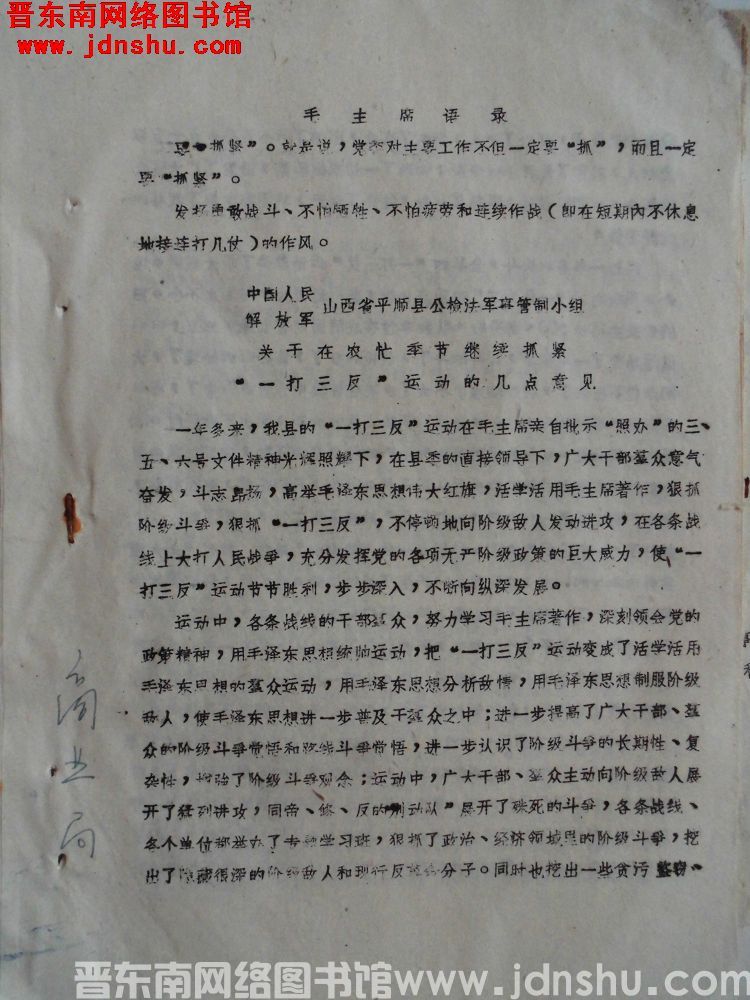 晋东南网络图书馆
www.jdnshu.com
毛主席语录
要“抓紧”。就是说，党委对主要工作不但一定要“抓”，而且一定
要“抓紧”。
发扬勇敢战斗、不怕牺牲、不怕疲劳和连续作战（即在短期内不休息
地接连打几仗）的作风。
中国人民
解放军
山西省平顺县公检法军事管制小组
关于在农忙季节继续抓紧
“一打三反”运动的几点意见
一年多来，我县的“一打三反”运动在毛主席亲自批示“照办”的三、
五、六号文件精神光辉照耀下，在县委的直接领导下，广大干部羣众意气
奋发，斗志昂扬，高举毛泽东思想伟大红旗，活学活用毛主席著作，狠抓
阶级斗争，狠抓“一打三反”，不停顿地向阶级敌人发动进攻，在各条战
线上大打人民战争，充分发挥党的各项无产阶级政策的巨大威力，使“一
打三反”运动节节胜利，步步深入，不断向纵深发展。
运动中，各条战线的干部羣众，努力学习毛主席著作，深刻领会党的
政策精神，用毛泽东思想统帅运动，把“一打三反”运动变成了活学活用
毛泽东思想的羣众运动，用毛泽东思想分析敌情，用毛泽东思想制服阶级
敌人，使毛泽东思想进一步普及于羣众之中；进一步提高了广大干部、羣
众的阶级斗争觉悟和路线斗争觉悟，进一步认识了阶级斗争的长期性、复
杂性，增强了阶级斗争观念；运动中，广大干部、羣众主动向阶级敌人展
开了猛烈进攻，同帝、修、反的别动队”展开了殊死的斗争，各条战线、
各个单位都举办了专题学习班，狠抓了政治、经济领域里的阶级斗争，挖
出了隐藏很深的阶级敌人和现行反革命分子。同时也挖出一些贪污盗窃、
商业局
晋东南网络图书馆www.jdnshu.com